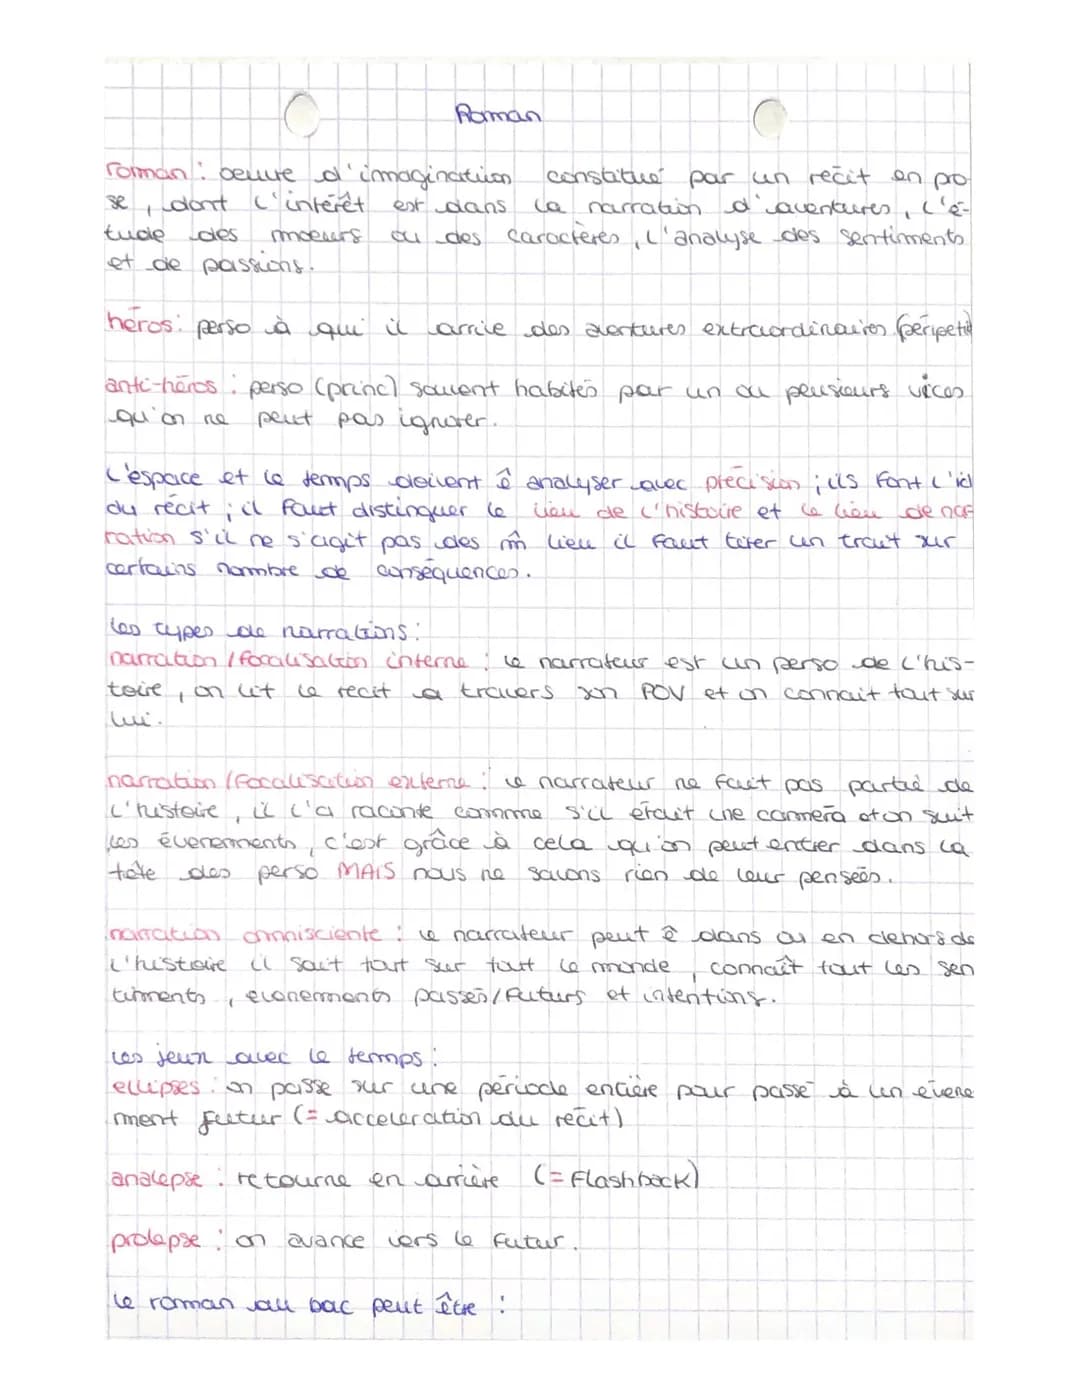 Roman
roman : oeuvre d'imagination constitué par un récit en pro
se, dont l'intérêt est dans la narration d'aventures, l'é-
tude des moeurs ou des caractères, l'analyse des sentiments
et de passions.
héros : perso à qui il arrive des aventures extraordinaires (péripeti
anti-héros : perso (princ) souvent habités par un ou plusieurs vices
qu'on ne peut pas ignorer.
L'espace et le temps doivent ê analyser avec précision ; ils font l'id
du récit ; il faut distinguer le lieu de l'histoire et le lieu de nar
ration s'il ne s'agit pas des m̂ lieu il faut tirer un trait sur
certains nombre de conséquences.
les types de narrations :
narration / focalisation interne : le narrateur est un perso de l'his-
toire, on lit le récit a travers son POV et on connait tout sur
lui.
narration / focalisation externe : le narrateur ne fait pas partie de
l'histoire, il l'a raconte comme s'il était une caméra et on suit
les évenements, c'est grâce à cela qu'on peut entrer dans la
tête des perso MAIS nous ne savons rien de leur pensées.
narration omnisciente : le narrateur peut ê dans ou en dehors de
l'histoire il sait tout sur tout le monde, connaît tout les sen
timents, evenements passés/futurs et intentions.
les jeux avec le temps :
ellipses : on passe sur une période entière pour passé à un évene
ment futur (= acceleration du récit)
analepse : retourne en arrière (= Flashback)
prolepse : on avance vers le futur.
le roman au bac peut être :